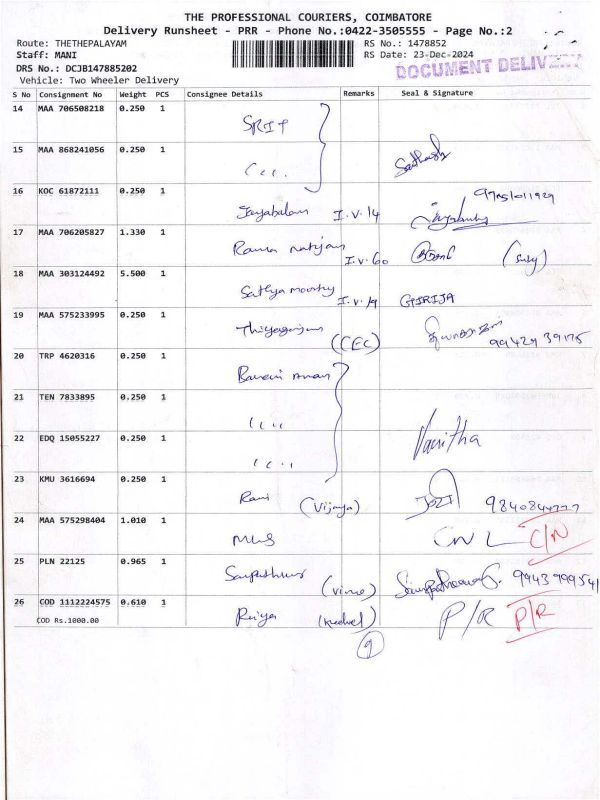 THE PROFESSIONAL COURIERS, COIMBATORE
Delivery Runsheet - PRR - Phone No.:0422-3505555 - Page No.:2
Route: THETHEPALAYAM RS No.: 1478852
Staff: MANI RS Date: 23-Dec-2024
DRS No.: DCJB147885202 DOCUMENT DELIVERY
Vehicle: Two Wheeler Delivery
S No Consignment No Weight PCS Consignee Details Remarks Seal & Signature
14 MAA 706508218 0.250 1
SRIT
15 MAA 868241056 0.250 1
Sathish
16 KOC 61872111 0.250 1
Jayabalan I.V.14
17 MAA 706205827 1.330 1
Rama natijan I.V.60
18 MAA 303124492 5.500 1
Sathya moorthy I.V.19 GIRIJA
19 MAA 575233995 0.250 1
Thiyagarajan (CEC) 99429 39175
20 TRP 4620316 0.250 1
21 TEN 7833895 0.250 1
22 EDQ 15055227 0.250 1
Vanitha
23 KMU 3616694 0.250 1
Rani (Vijaya)
24 MAA 575298404 1.010 1
C/N
25 PLN 22125 0.965 1
(Vimo)
26 COD 1112224575 0.610 1
COD Rs.1000.00 Priya P/R P/R
9